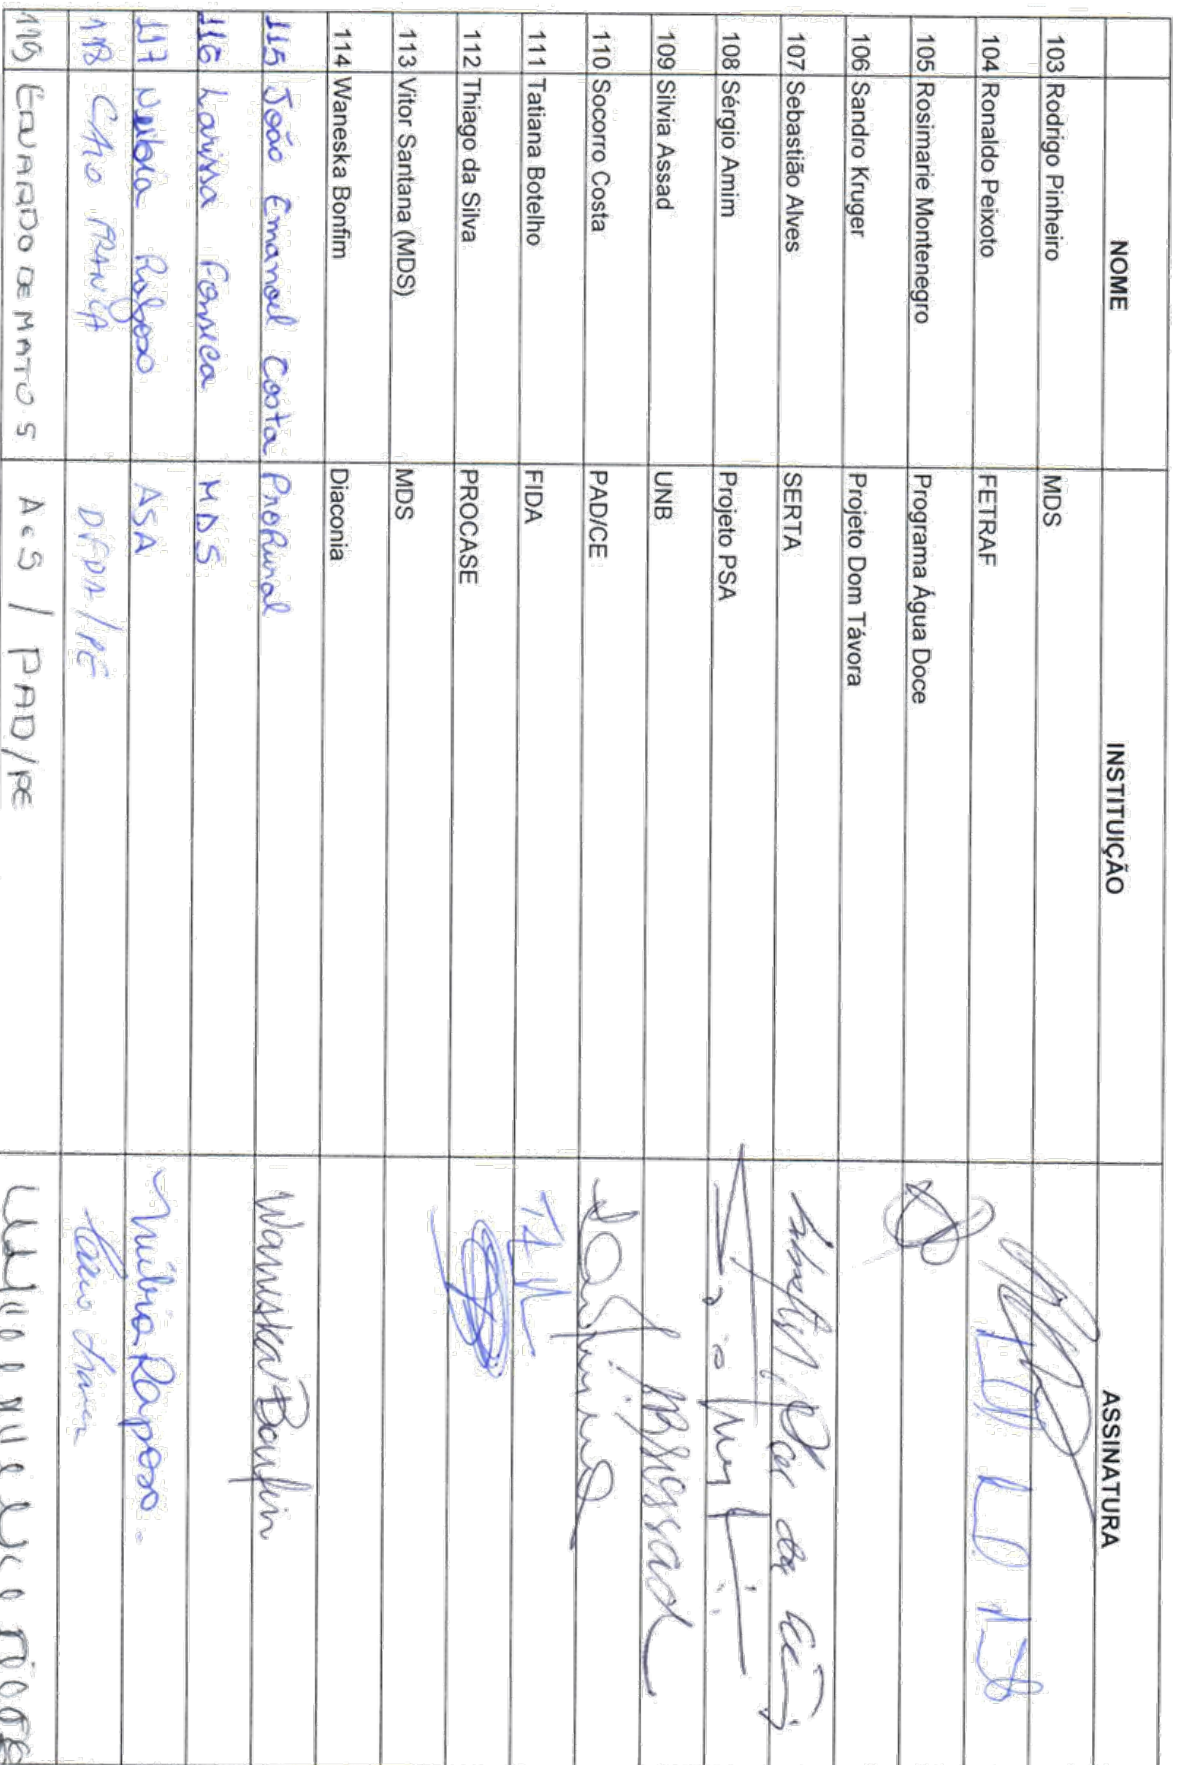 NOME INSTITUIÇÃO ASSINATURA
103 Rodrigo Pinheiro MDS
104 Ronaldo Peixoto FETRAF
105 Rosimarie Montenegro Programa Água Doce
106 Sandro Kruger Projeto Dom Távora
107 Sebastião Alves SERTA
108 Sérgio Amim Projeto PSA
109 Silvia Assad UNB
110 Socorro Costa PAD/CE
111 Tatiana Botelho FIDA
112 Thiago da Silva PROCASE
113 Vitor Santana (MDS) MDS
114 Waneska Bonfim Diaconia Waneska Bonfim
115 João Emanoel Costa ProRural
116 Larissa Fonseca MDS
117 Núbia Raposo ASA Núbia Raposo.
118 CAIO FRANÇA DFDA/PE Caio França
119 EDUARDO DE MATOS ACS / PAD/PE